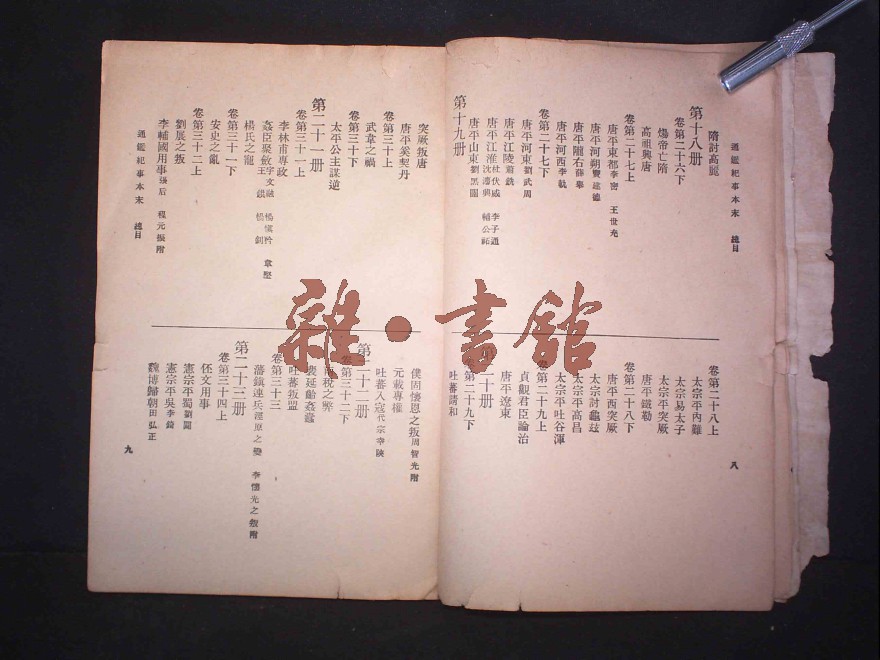 通鑑紀事本末 總目
隋討高麗
第十八册
卷第二十六下
煬帝亡隋
高祖興唐
卷第二十七上
唐平東都李密 王世充
唐平河朔竇建德
唐平隴右薛舉
唐平河西李軌
卷第二十七下
唐平河東劉武周
唐平江陵蕭銑
唐平江淮杜伏威 李子通 沈法興 輔公祏
唐平山東劉黑闥
第十九册
卷第二十八上
太宗平內難
太宗易太子
太宗平突厥
唐平鐵勒
卷第二十八下
唐平西突厥
太宗討龜茲
太宗平高昌
太宗平吐谷渾
卷第二十九上
貞觀君臣論治
唐平遼東
第二十册
卷第二十九下
吐蕃請和
八
突厥叛唐
唐平奚契丹
卷第三十上
武韋之禍
卷第三十下
太平公主謀逆
第二十一册
卷第三十一上
李林甫專政
姦臣聚斂宇文融 楊慎矜 韋堅 王鉷 楊釗
楊氏之寵
卷第三十一下
安史之亂
卷第三十二上
劉展之叛
李輔國用事張后 程元振附
通鑑紀事本末 總目
僕固懷恩之叛周智光附
元載專權
吐蕃入寇代宗幸陝
第二十二册
卷第三十二下
兩稅之弊
裴延齡姦蠹
吐蕃叛盟
卷第三十三
藩鎭連兵涇原之變 李懷光之叛附
第二十三册
卷第三十四上
伾文用事
憲宗平蜀劉闢
憲宗平吳李錡
魏博歸朝田弘正
九
雜·書館